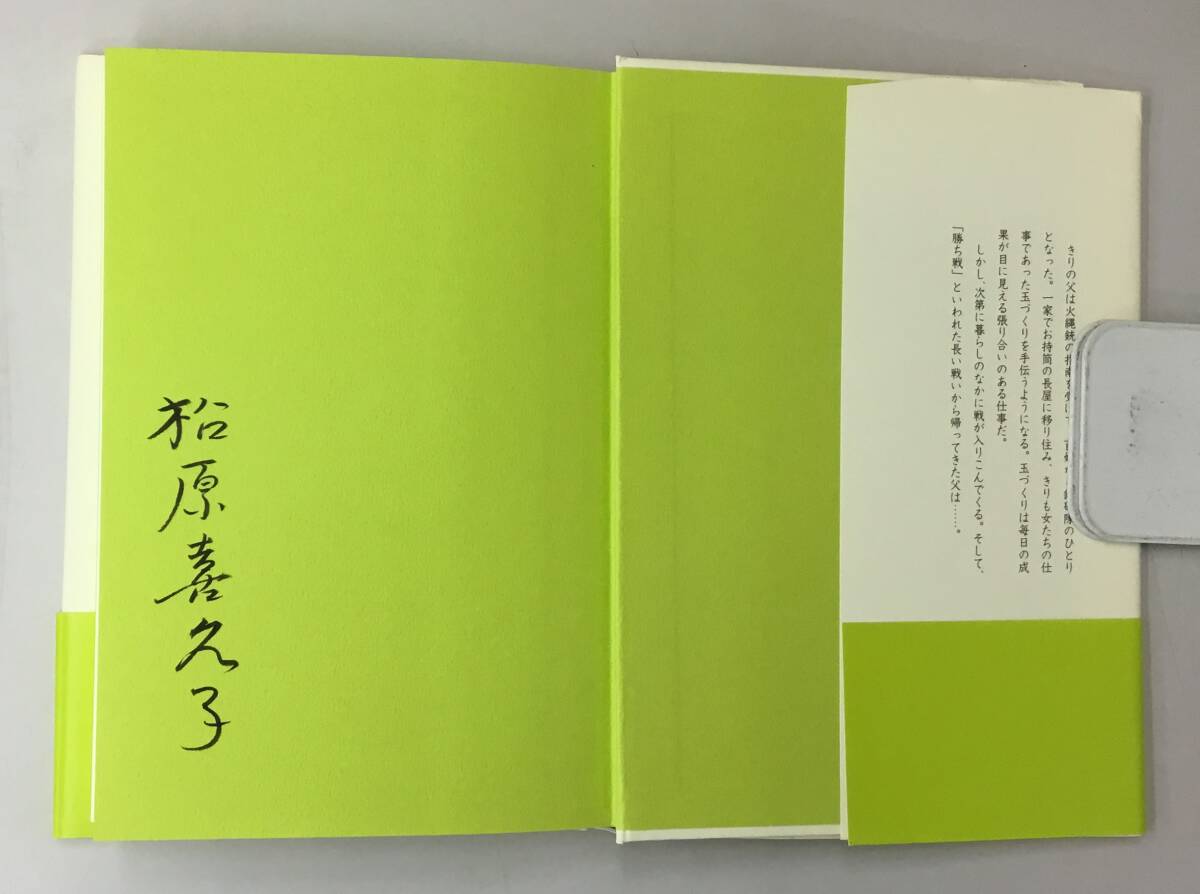 きりの父は火縄銃の指南を受け 隊のひとり
となった。一家でお持筒の長屋に移り住み、きりも女たちの仕
事であった玉づくりを手伝うようになる。玉づくりは毎日の成
果が目に見える張り合いのある仕事だ。
しかし、次第に暮らしのなかに戦が入りこんでくる。そして、
「勝ち戦」といわれた長い戦いから帰ってきた父は……。
柗原喜久子